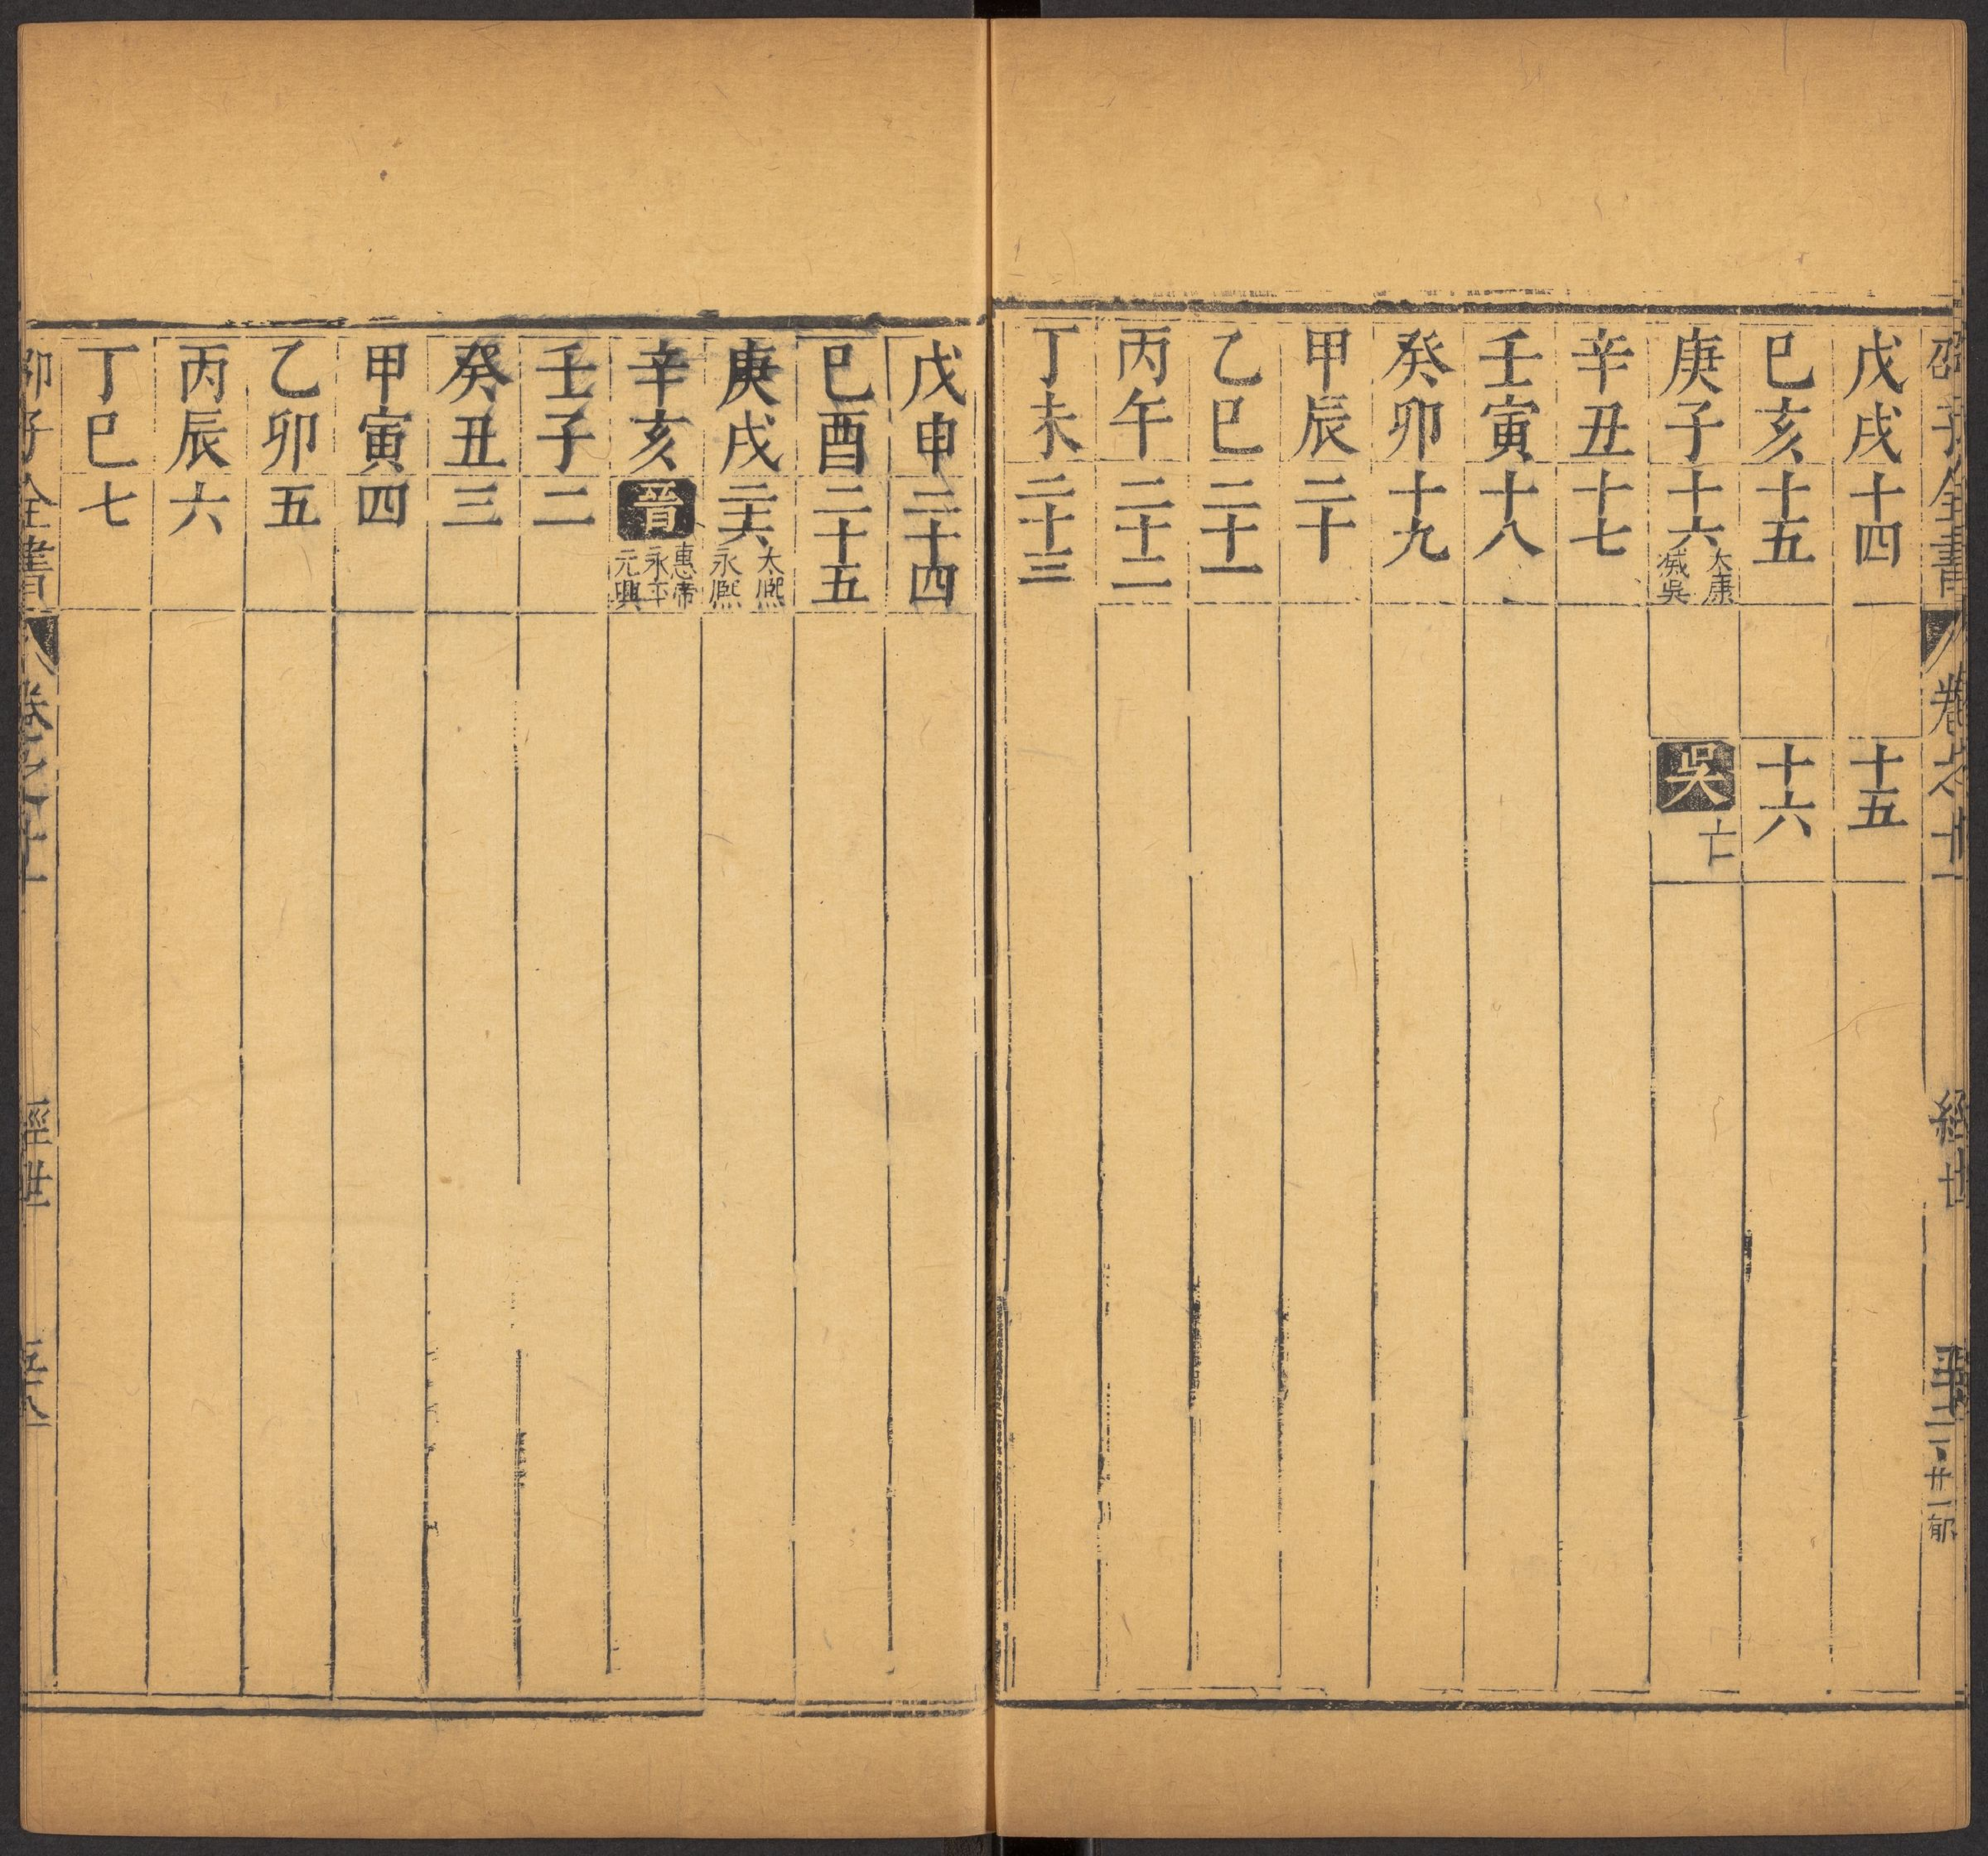 邵子全書 卷之十一 經世
戊戌 十四 十五
己亥 十五 十六
庚子 十六 太康 滅吳 吳 亡
辛丑 十七
壬寅 十八
癸卯 十九
甲辰 二十
乙巳 二十一
丙午 二十二
丁未 二十三
戊申 二十四
己酉 二十五
庚戌 二十六 太熙 永熙
辛亥 晉 惠帝 永平 元興
壬子 二
癸丑 三
甲寅 四
乙卯 五
丙辰 六
丁巳 七
邵子全書 卷之十一 經世